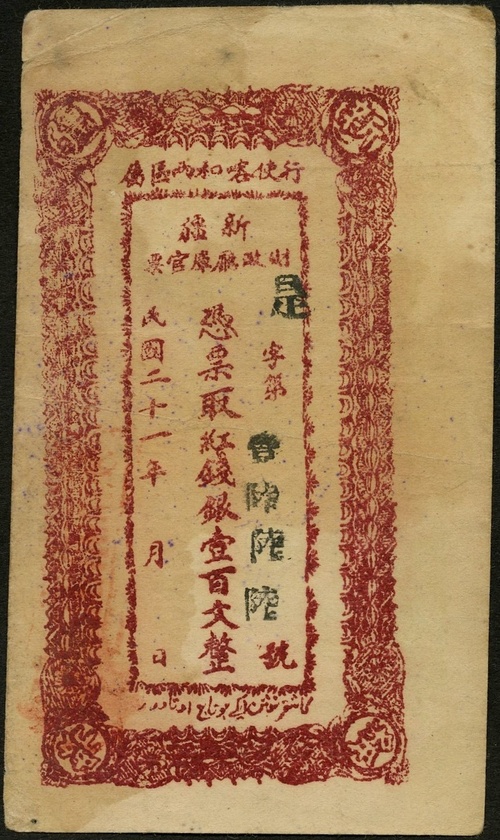 行使喀和兩區
新疆
財政廳庫官票
是字第陸陸陸號
憑票取紅錢銀壹百文整
民國二十一年 月 日